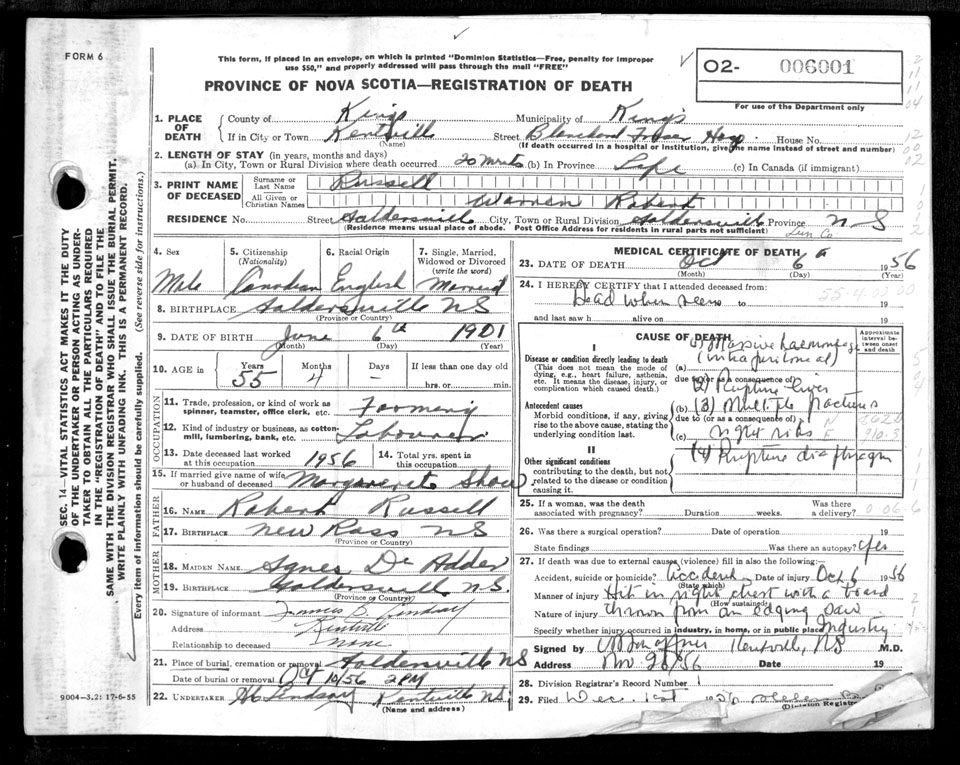 FORM 6
This form, if placed in an envelope, on which is printed "Dominion Statistics—Free, penalty for improper
use $50," and properly addressed will pass through the mail "FREE"
PROVINCE OF NOVA SCOTIA—REGISTRATION OF DEATH
O2- 006001
For use of the Department only
1. PLACE OF DEATH
County of Kings Municipality of Kings
If in City or Town Kentville Street Blanchard Fraser Hosp House No.
(Name) (If death occurred in a hospital or institution, give the name instead of street and number)
2. LENGTH OF STAY (in years, months and days)
(a). In City, Town or Rural Division where death occurred 20 (b) In Province Life (c) In Canada (if immigrant)
3. PRINT NAME OF DECEASED
Surname or Last Name Russell
All Given or Christian Names Warren Robert
RESIDENCE No. Street City, Town or Rural Division Province N S
(Residence means usual place of abode. Post Office Address for residents in rural parts not sufficient) Lun Co
4. Sex Male
5. Citizenship (Nationality) Canadian
6. Racial Origin English
7. Single, Married, Widowed or Divorced (write the word) Married
8. BIRTHPLACE NS
(Province or Country)
9. DATE OF BIRTH June 6th 1901
(Month) (Day) (Year)
10. AGE in Years 55 Months 4 Days — If less than one day old
hrs. or min.
OCCUPATION
11. Trade, profession, or kind of work as spinner, teamster, office clerk, etc. Farming
12. Kind of industry or business, as cotton-mill, lumbering, bank, etc. Labourer
13. Date deceased last worked at this occupation 1956
14. Total yrs. spent in this occupation
15. If married give name of wife or husband of deceased Margarete Shaw
FATHER
16. NAME Robert Russell
17. BIRTHPLACE New Ross NS
(Province or Country)
MOTHER
18. MAIDEN NAME Agnes De Adder
19. BIRTHPLACE N.S.
(Province or Country)
20. Signature of informant Francis B. Lindsay
Address Kentville
Relationship to deceased none
21. Place of burial, cremation or removal NS
Date of burial or removal Oct 10/56 2 PM
22. UNDERTAKER Lindsay Kentville NS.
(Name and address)
MEDICAL CERTIFICATE OF DEATH
23. DATE OF DEATH Oct 6th 1956
(Month) (Day) (Year)
24. I HEREBY CERTIFY that I attended deceased from:
Dead when seen to 19
and last saw h alive on 19
CAUSE OF DEATH
Approximate interval between onset and death
I
Disease or condition directly leading to death
(This does not mean the mode of dying, e.g., heart failure, asthenia, etc. It means the disease, injury, or complication which caused death.)
(a) 1) Massive haemorrhage (intraperitoneal)
due to (or as a consequence of)
2) Rupture liver
Antecedent causes
Morbid conditions, if any, giving rise to the above cause, stating the underlying condition last.
(b) (3) Multiple fractures
due to (or as a consequence of)
(c) right ribs
II
Other significant conditions
contributing to the death, but not related to the disease or condition causing it.
(4) Rupture diaphragm
25. If a woman, was the death associated with pregnancy? Duration weeks. Was there a delivery?
26. Was there a surgical operation? Date of operation 19
State findings Was there an autopsy? Yes
27. If death was due to external causes (violence) fill in also the following:—
Accident, suicide or homicide? Accident Date of injury Oct 6 1956
Manner of injury Hit in right chest with a board
(How sustained)
Nature of injury thrown from an edging saw.
Specify whether injury occurred in industry, in home, or in public place Industry
Signed by Kentville, NS M.D.
Address Nov 26/56 Date 19
28. Division Registrar's Record Number 1
29. Filed Dec. 1st 1956
(Division Registrar
SEC. 14—VITAL STATISTICS ACT MAKES IT THE DUTY
OF THE UNDERTAKER OR PERSON ACTING AS UNDER-
TAKER TO OBTAIN ALL THE PARTICULARS REQUIRED
IN THE "REGISTRATION OF DEATH" AND TO FILE THE
SAME WITH THE DIVISION REGISTRAR WHO SHALL ISSUE THE BURIAL PERMIT.
WRITE PLAINLY WITH UNFADING INK. THIS IS A PERMANENT RECORD.
Every item of information should be carefully supplied. (See reverse side for instructions.)
9004-3.2: 17-6-55